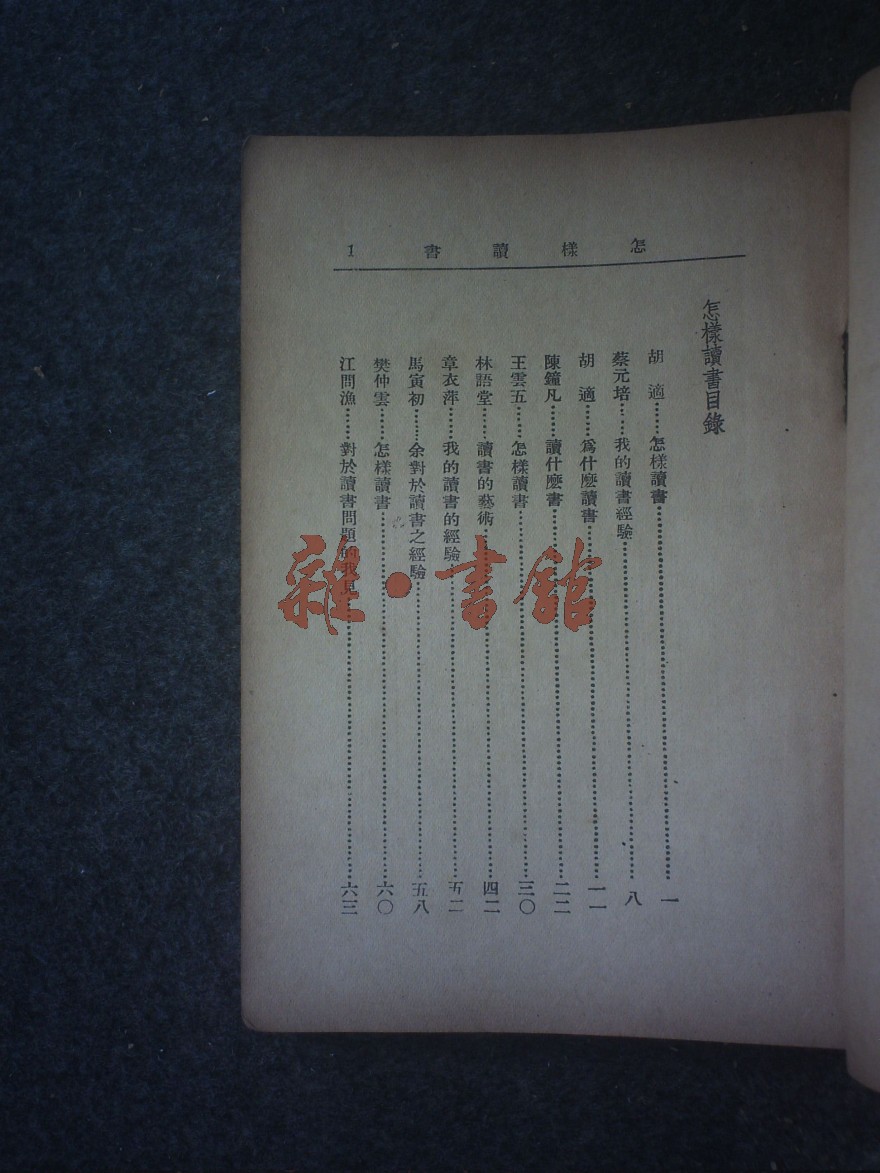 怎樣讀書 1
怎樣讀書目錄
胡適……怎樣讀書……一
蔡元培……我的讀書經驗……八
胡適……為什麽讀書……一一
陳鐘凡……讀什麽書……二二
王雲五……怎樣讀書……三〇
林語堂……讀書的藝術……四二
章衣萍……我的讀書的經驗……五二
馬寅初……余對於讀書之經驗……五八
樊仲雲……怎樣讀書……六〇
江問漁……對於讀書問題的我見……六三
雜·書館